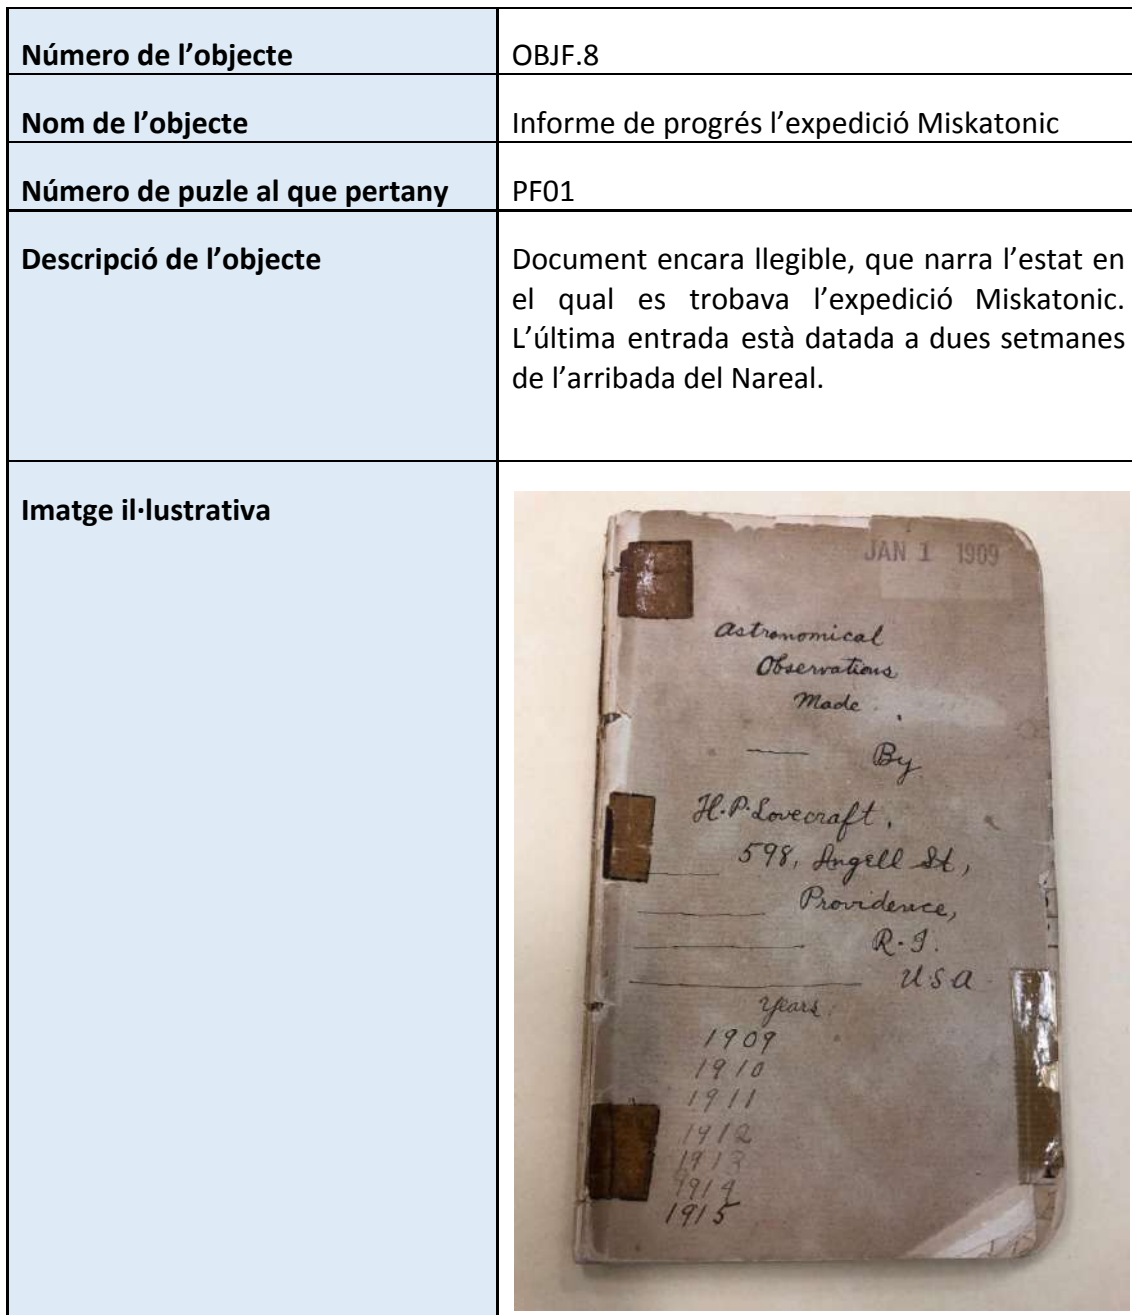 Número de l’objecte
OBJF.8
Nom de l’objecte
Informe de progrés l’expedició Miskatonic
Número de puzle al que pertany
PF01
Descripció de l’objecte
Document encara llegible, que narra l’estat en
el qual es trobava l’expedició Miskatonic.
L’última entrada està datada a dues setmanes
de l’arribada del Nareal.
Imatge il·lustrativa
JAN 1 1909
Astronomical
Observations
Made
By
H.P. Lovecraft.
598, Angell St,
Providence,
R.I.
U.S.A.
Years
1909
1910
1911
1912
1913
1914
1915